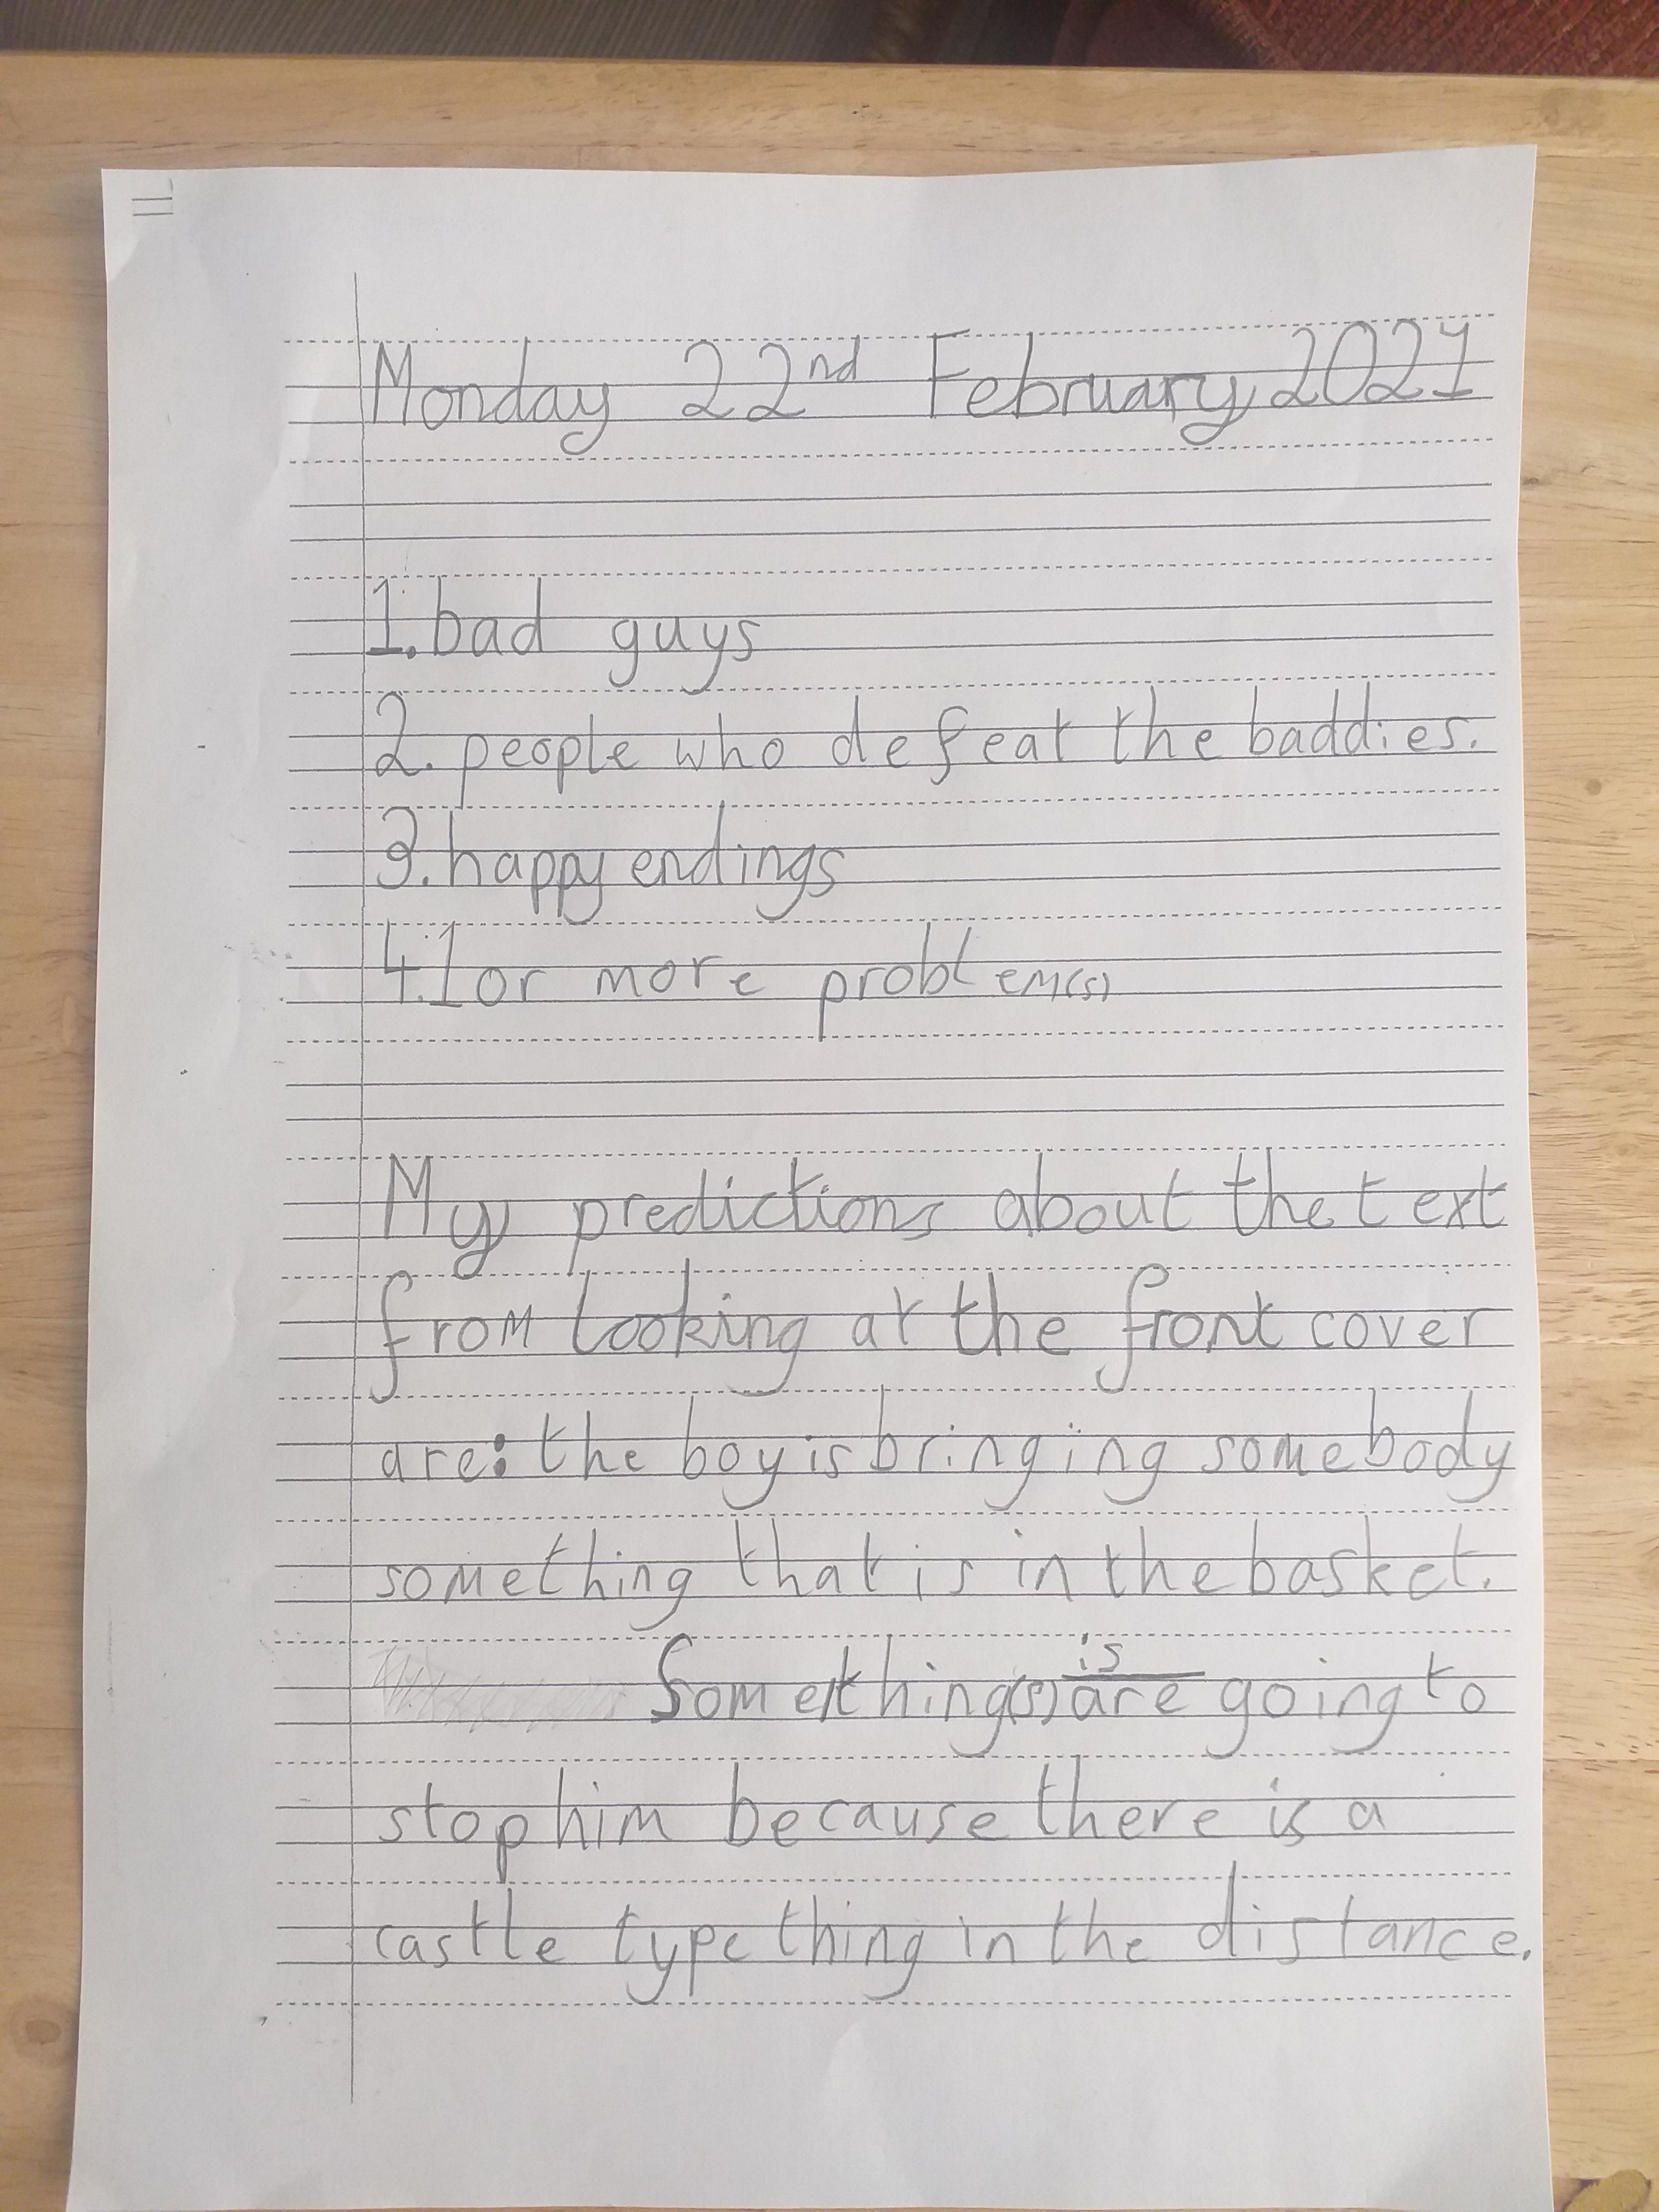 Monday 22nd February, 2021
1. bad guys
2. people who defeat the baddies.
3. happy endings
4. 1 or more problem(s)
My predictions about the text
from looking at the front cover
are: the boy is bringing somebody
something that is in the basket.
is
Something(s) are going to
stop him because there is a
castle type thing in the distance.